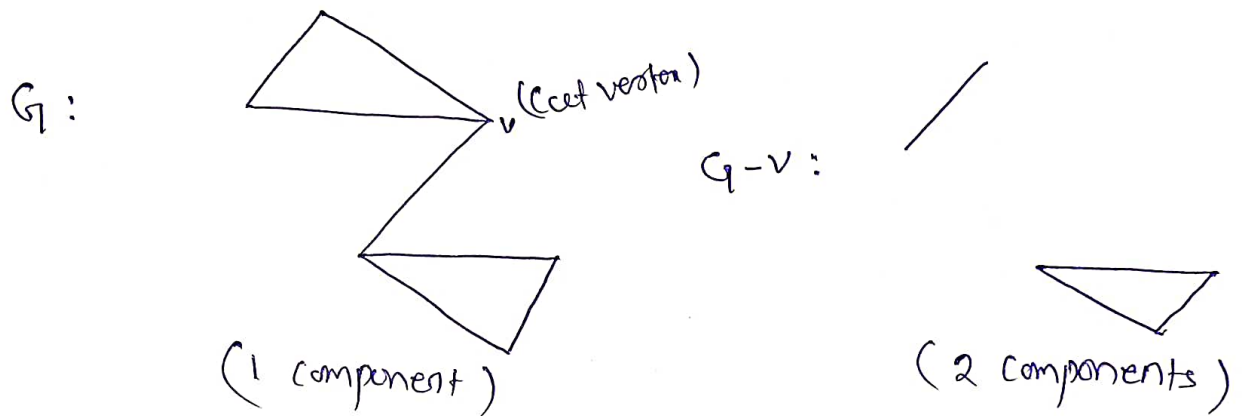 G :
v (Cut vertex)
G-v :
(1 component)
(2 components)